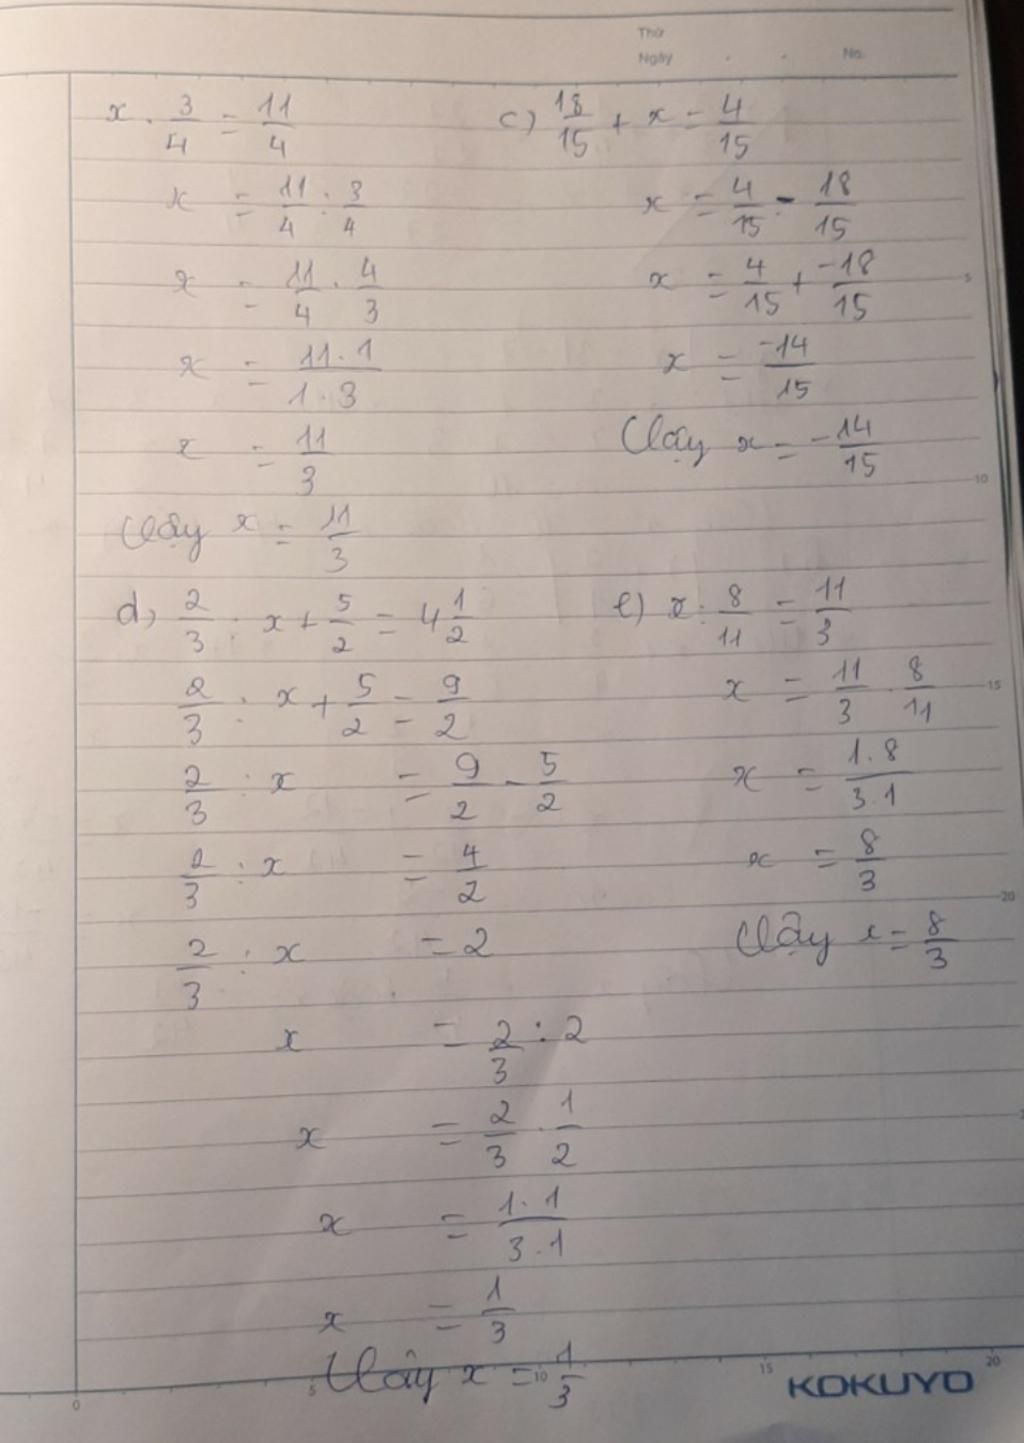 Thứ
Ngày . . No.
x . 3/4 = 11/4
x = 11/4 : 3/4
x = 11/4 . 4/3
x = 11.1/1.3
x = 11/3
Vậy x = 11/3
c) 18/15 + x = 4/15
x = 4/15 - 18/15
x = 4/15 + -18/15
x = -14/15
Vậy x = -14/15
d) 2/3 : x + 5/2 = 4 1/2
2/3 : x + 5/2 = 9/2
2/3 : x = 9/2 - 5/2
2/3 : x = 4/2
2/3 : x = 2
x = 2/3 : 2
x = 2/3 . 1/2
x = 1.1/3.1
x = 1/3
Vậy x = 1/3
e) x : 8/11 = 11/3
x = 11/3 . 8/11
x = 1.8/3.1
x = 8/3
Vậy x = 8/3
5
10
15
20
0 5 10 15 20
KOKUYO